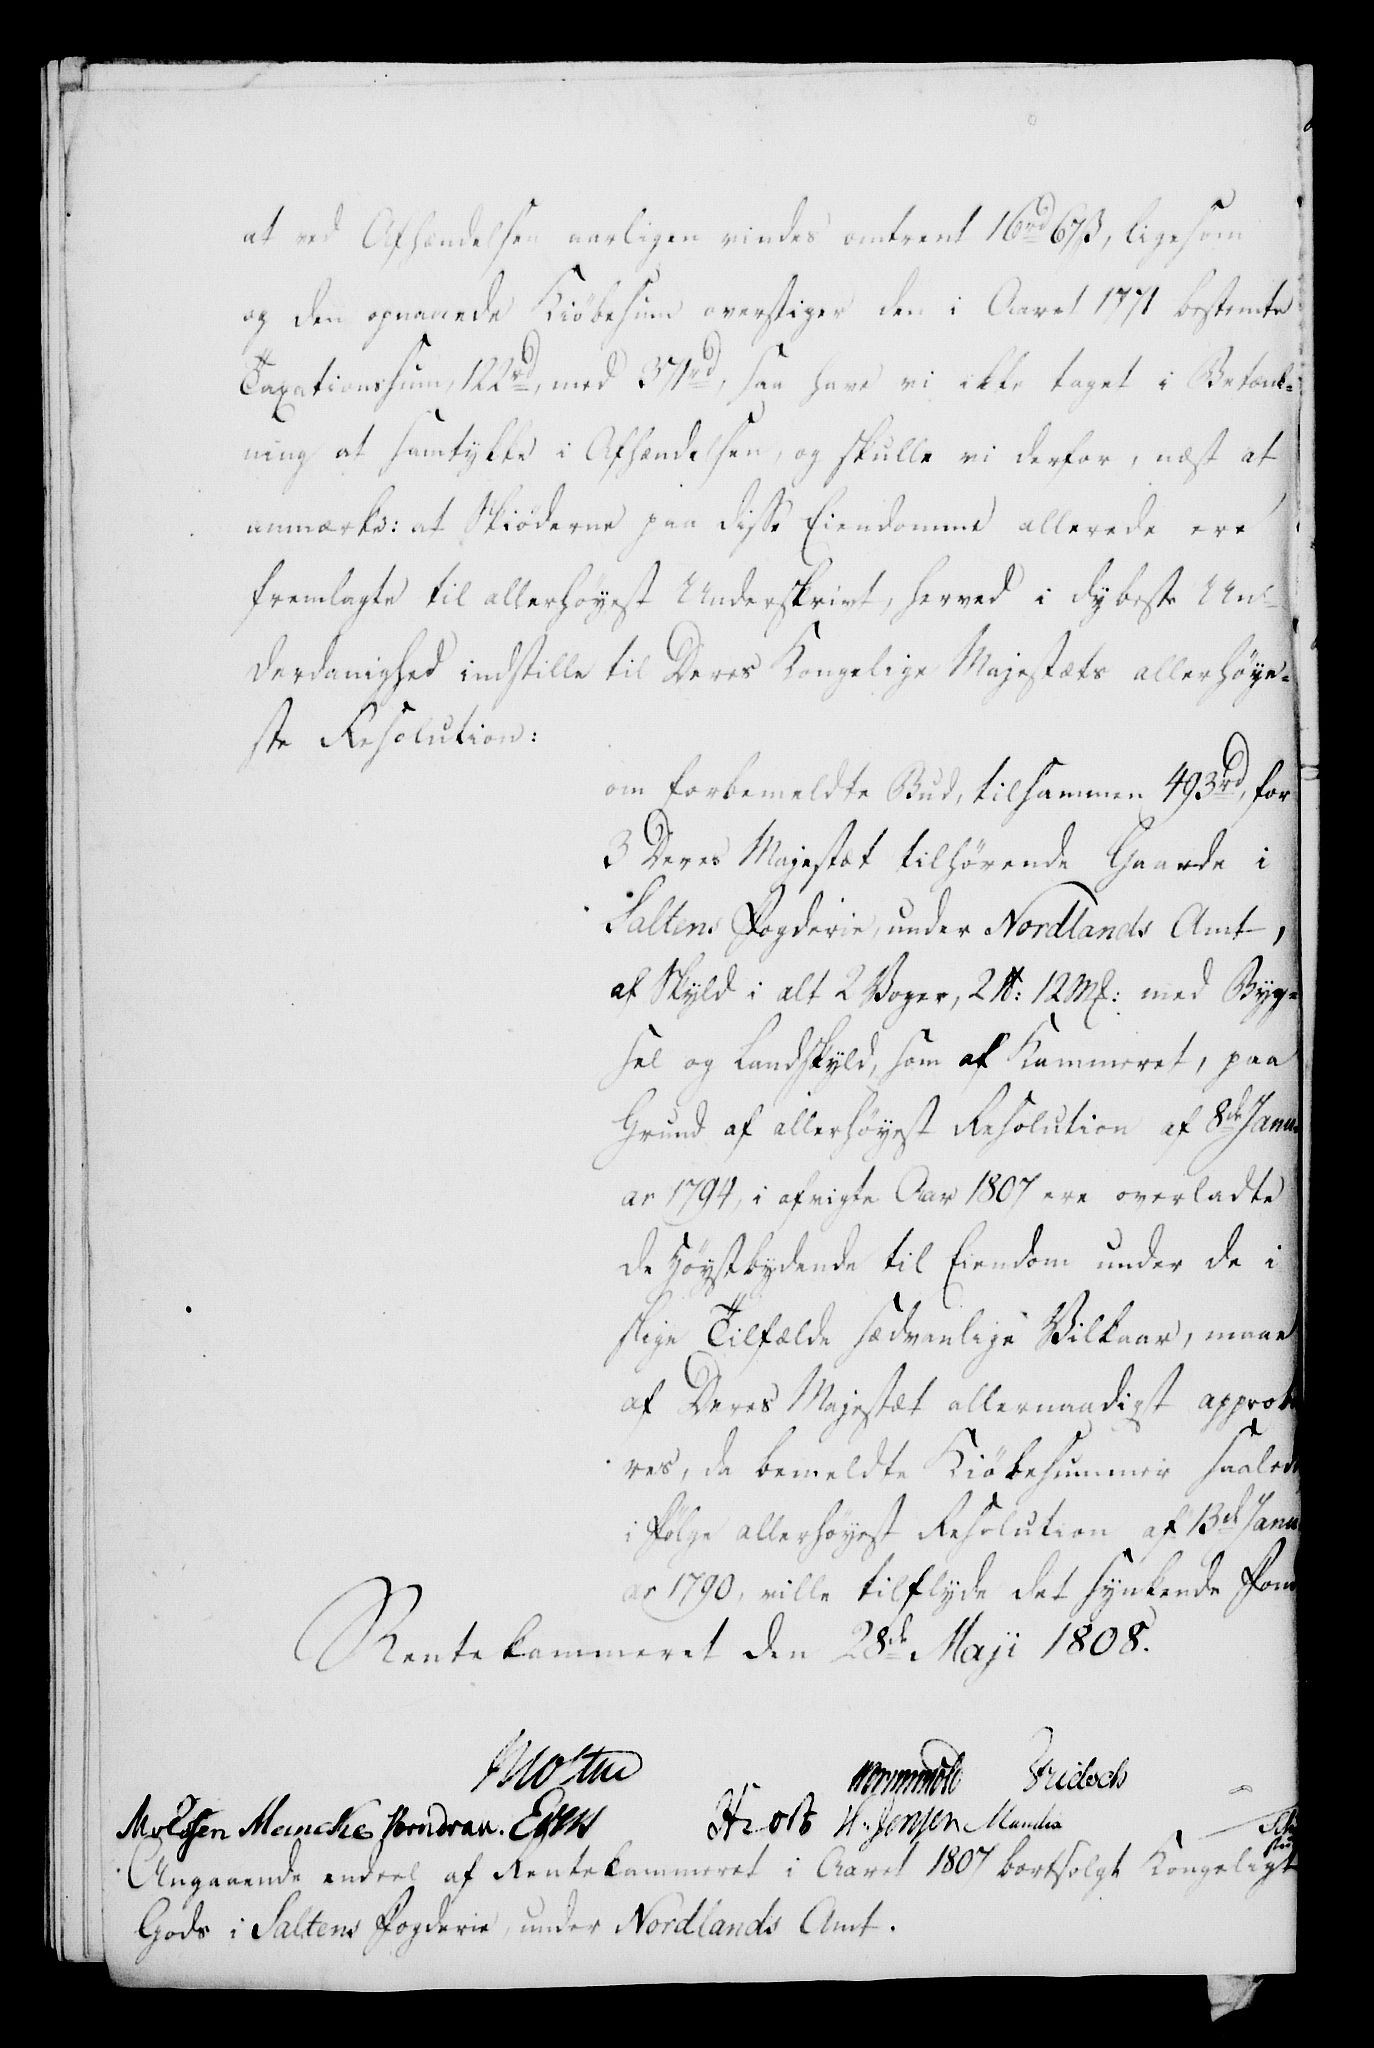 at ved Afhændelsen aarligen vindes omtrent 16rd 67ß, ligesom
og den opnaaede Kiöbesum overstiger den i Aaret 1771 bestemte
Taxationssum, 122rd, med 371rd, saa have vi ikke taget i Betænk-
ning at samtykke i Afhændelsen, og skulle vi derfor, næst at
anmærke: at Skiöderne paa disse Eiendomme allerede ere
fremlagte til allerhöyest Underskrivt, herved i dybeste Un-
derdanighed indstille til Deres Kongelige Majestæts allerhöye-
ste Resolution:
om forbemeldte Bud, tilsammen 493rd, for
3 Deres Majestæt tilhörende Gaarde i
Saltens Fogderie, under Nordlands Amt,
af Skyld i alt 2 Voger, 2 ℔: 12 Mk: med Byg-
sel og Landskyld, som af Kammeret, paa
Grund af allerhöyest Resolution af 8de Janu-
ar 1794, i afvigte Aar 1807 ere overladte
de Höystbydende til Eiendom under de i
slige Tilfælde sædvanlige Vilkaar, maae
af Deres Majestæt allernaadigst approbe
res, da bemeldte Kiöbesummer saalede
i fölge allerhöyest Resolution af 13de Janu
ar 1790, ville tilflyde det synkende Fon
Rentekammeret den 28de Maji 1808.
Moltke
Wormskiold Fridsch
Moldsen Manche Egers Krog H. Jensen Mandix
Angaaende endeel af Rentekammeret i Aaret 1807 bortsolgt Kongeligt
Gods i Saltens Fogderie, under Nordlands Amt.